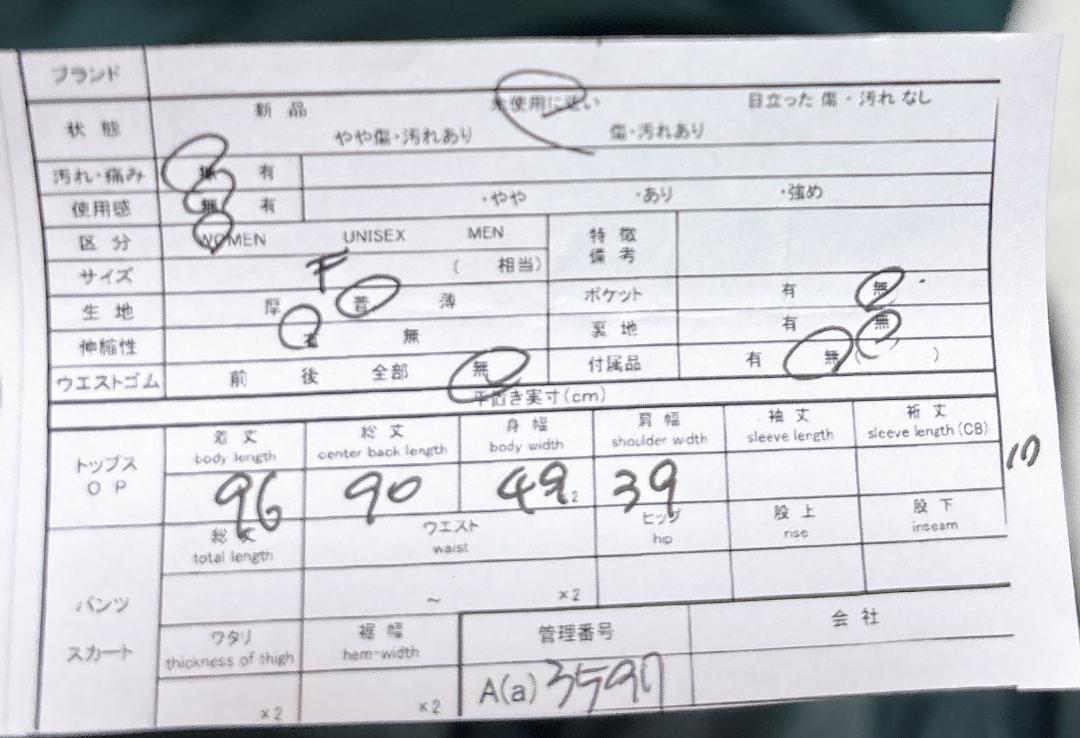 ブランド
状態 新品 未使用に近い 目立った傷・汚れなし
やや傷・汚れあり 傷・汚れあり
汚れ・痛み 無 有
使用感 無 有 ・やや ・あり ・強め
区分 WOMEN UNISEX MEN 特徴
備考
サイズ F ( 相当)
生地 厚 普 薄 ポケット 有 無
伸縮性 有 無 裏地 有 無
ウエストゴム 前 後 全部 無 付属品 有 無 ( )
平置き実寸(cm)
トップス
OP
着丈 総丈 身幅 肩幅 袖丈 裄丈
body length center back length body width shoulder width sleeve length sleeve length (CB)
96 90 49 39
総丈 ウエスト ヒップ 股上 股下
total length waist hip rise inseam
パンツ ~ ×2
スカート
ワタリ 裾幅 管理番号 会社
thickness of thigh hem-width
×2 ×2 A(a) 3597